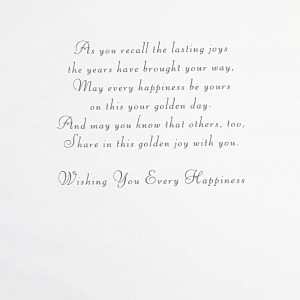 As you recall the lasting joys
the years have brought your way,
May every happiness be yours
on this your golden day-
And may you know that others, too,
Share in this golden joy with you.
Wishing You Every Happiness